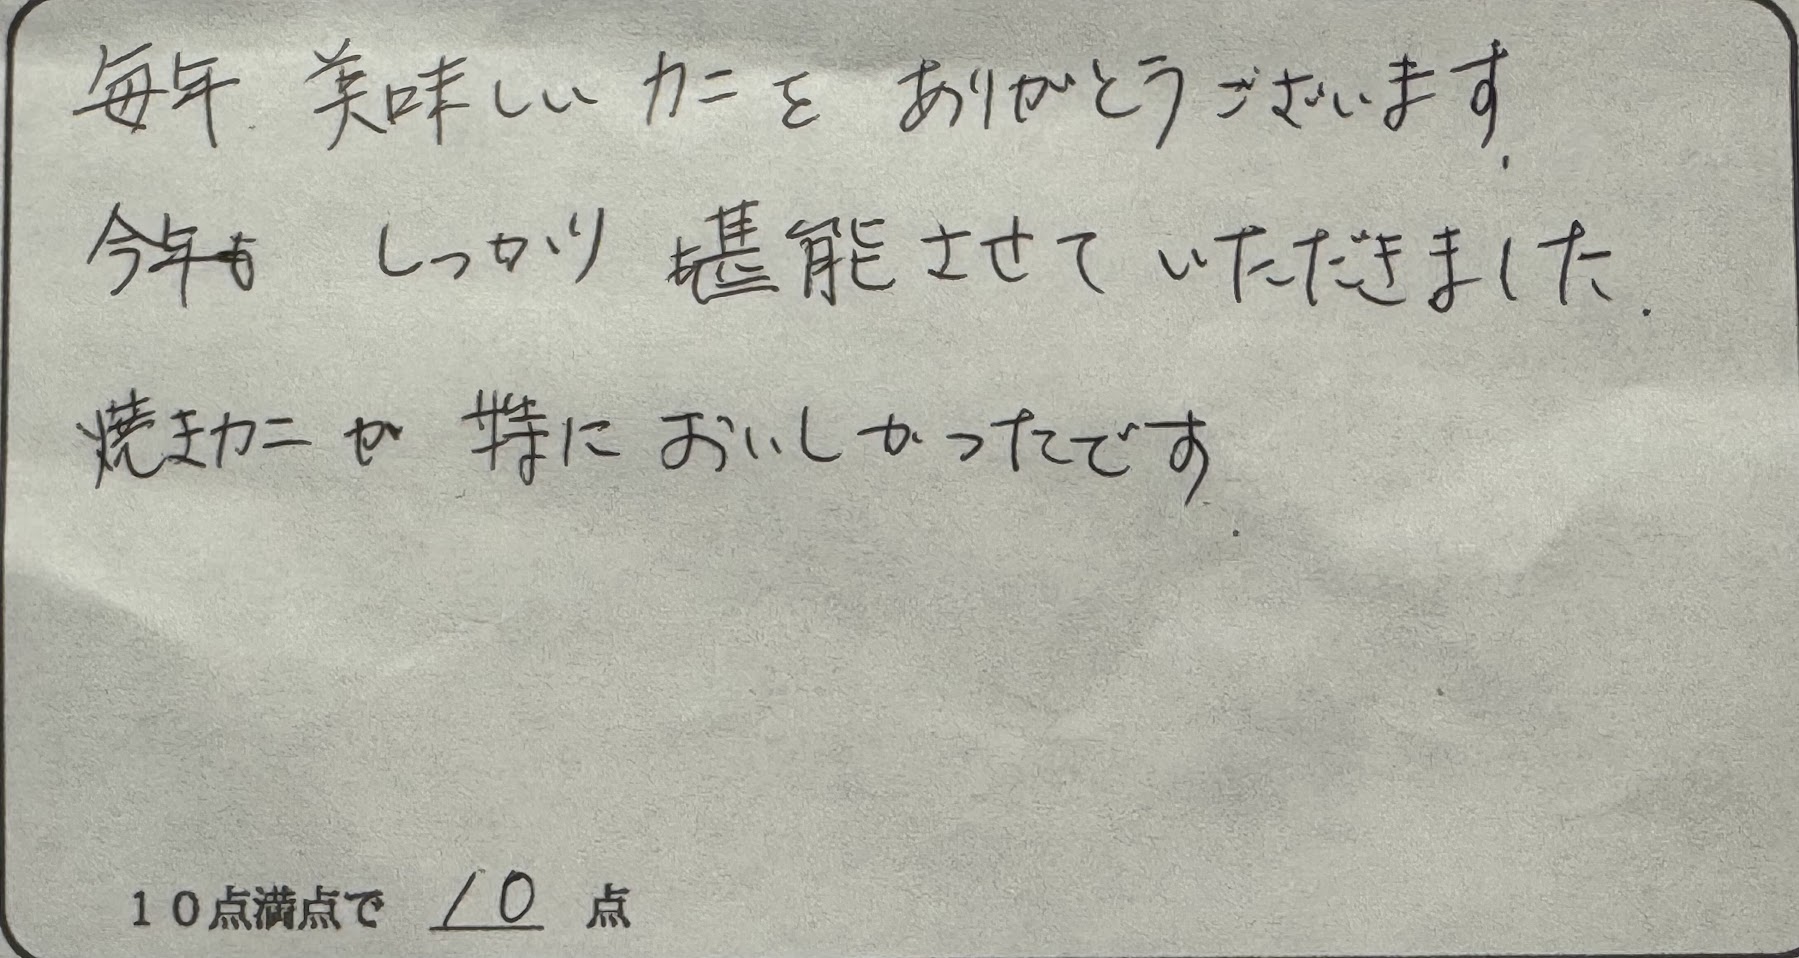 毎年 美味しい カニを ありがとうございます.
今年も しっかり 堪能させて いただきました.
焼きカニが 特に おいしかったです.
10点満点で 10 点